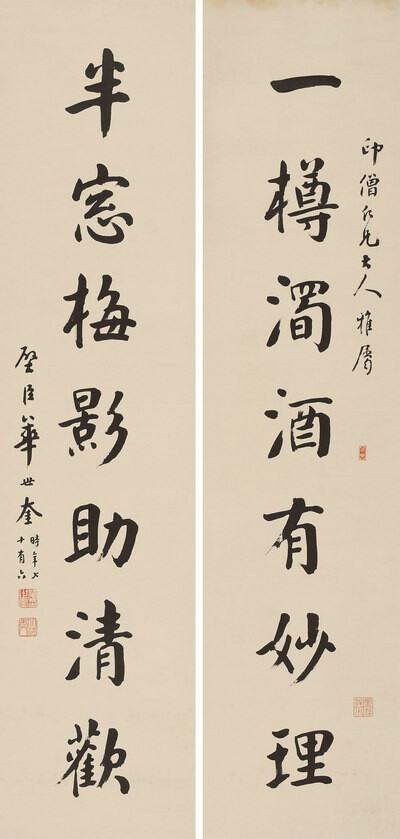 印僧仁兄大人雅属
一樽濁酒有妙理
半窓梅影助清歡
壁臣華世奎
時年七
十有六